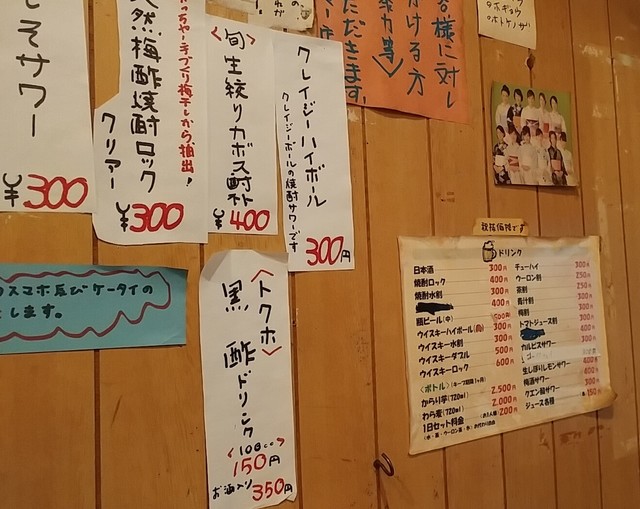 そサワー
¥300
然梅酢焼酎ロック
クリアー
手づくり梅干しから、抽出!
¥300
〈旬〉
生絞りカボス酎ハイ
¥400
クレイジーハイボール
クレイジーボールの焼酎サワーです
300円
様に対し
ける方
ただきます。
スマホ及びケータイの
します。
〈トクホ〉
黒酢ドリンク
〈100cc〉
150円
お酒入り350円
税抜価格です
ドリンク
日本酒 300円
焼酎ロック 400円
焼酎水割 300円
400円
瓶ビール(中) 500円
ウイスキーハイボール(角) 300円
ウイスキー水割 300円
ウイスキーダブル 500円
ウイスキーロック 600円
〈ボトル〉(キープ期限1ヶ月)
からり芋(720ml) 2,500円
わら麦(720ml) 2,000円
1日セット料金 お1人様 200円
(氷・水・ウーロン茶・茶) お代わり自由
チューハイ 300円
ウーロン割 250円
茶割 250円
青汁割 300円
梅割 300円
トマトジュース割 300円
400円
カルピスサワー 300円
生しぼりレモンサワー 400円
梅酒サワー 300円
クエン酸サワー 300円
ジュース各種 各150円